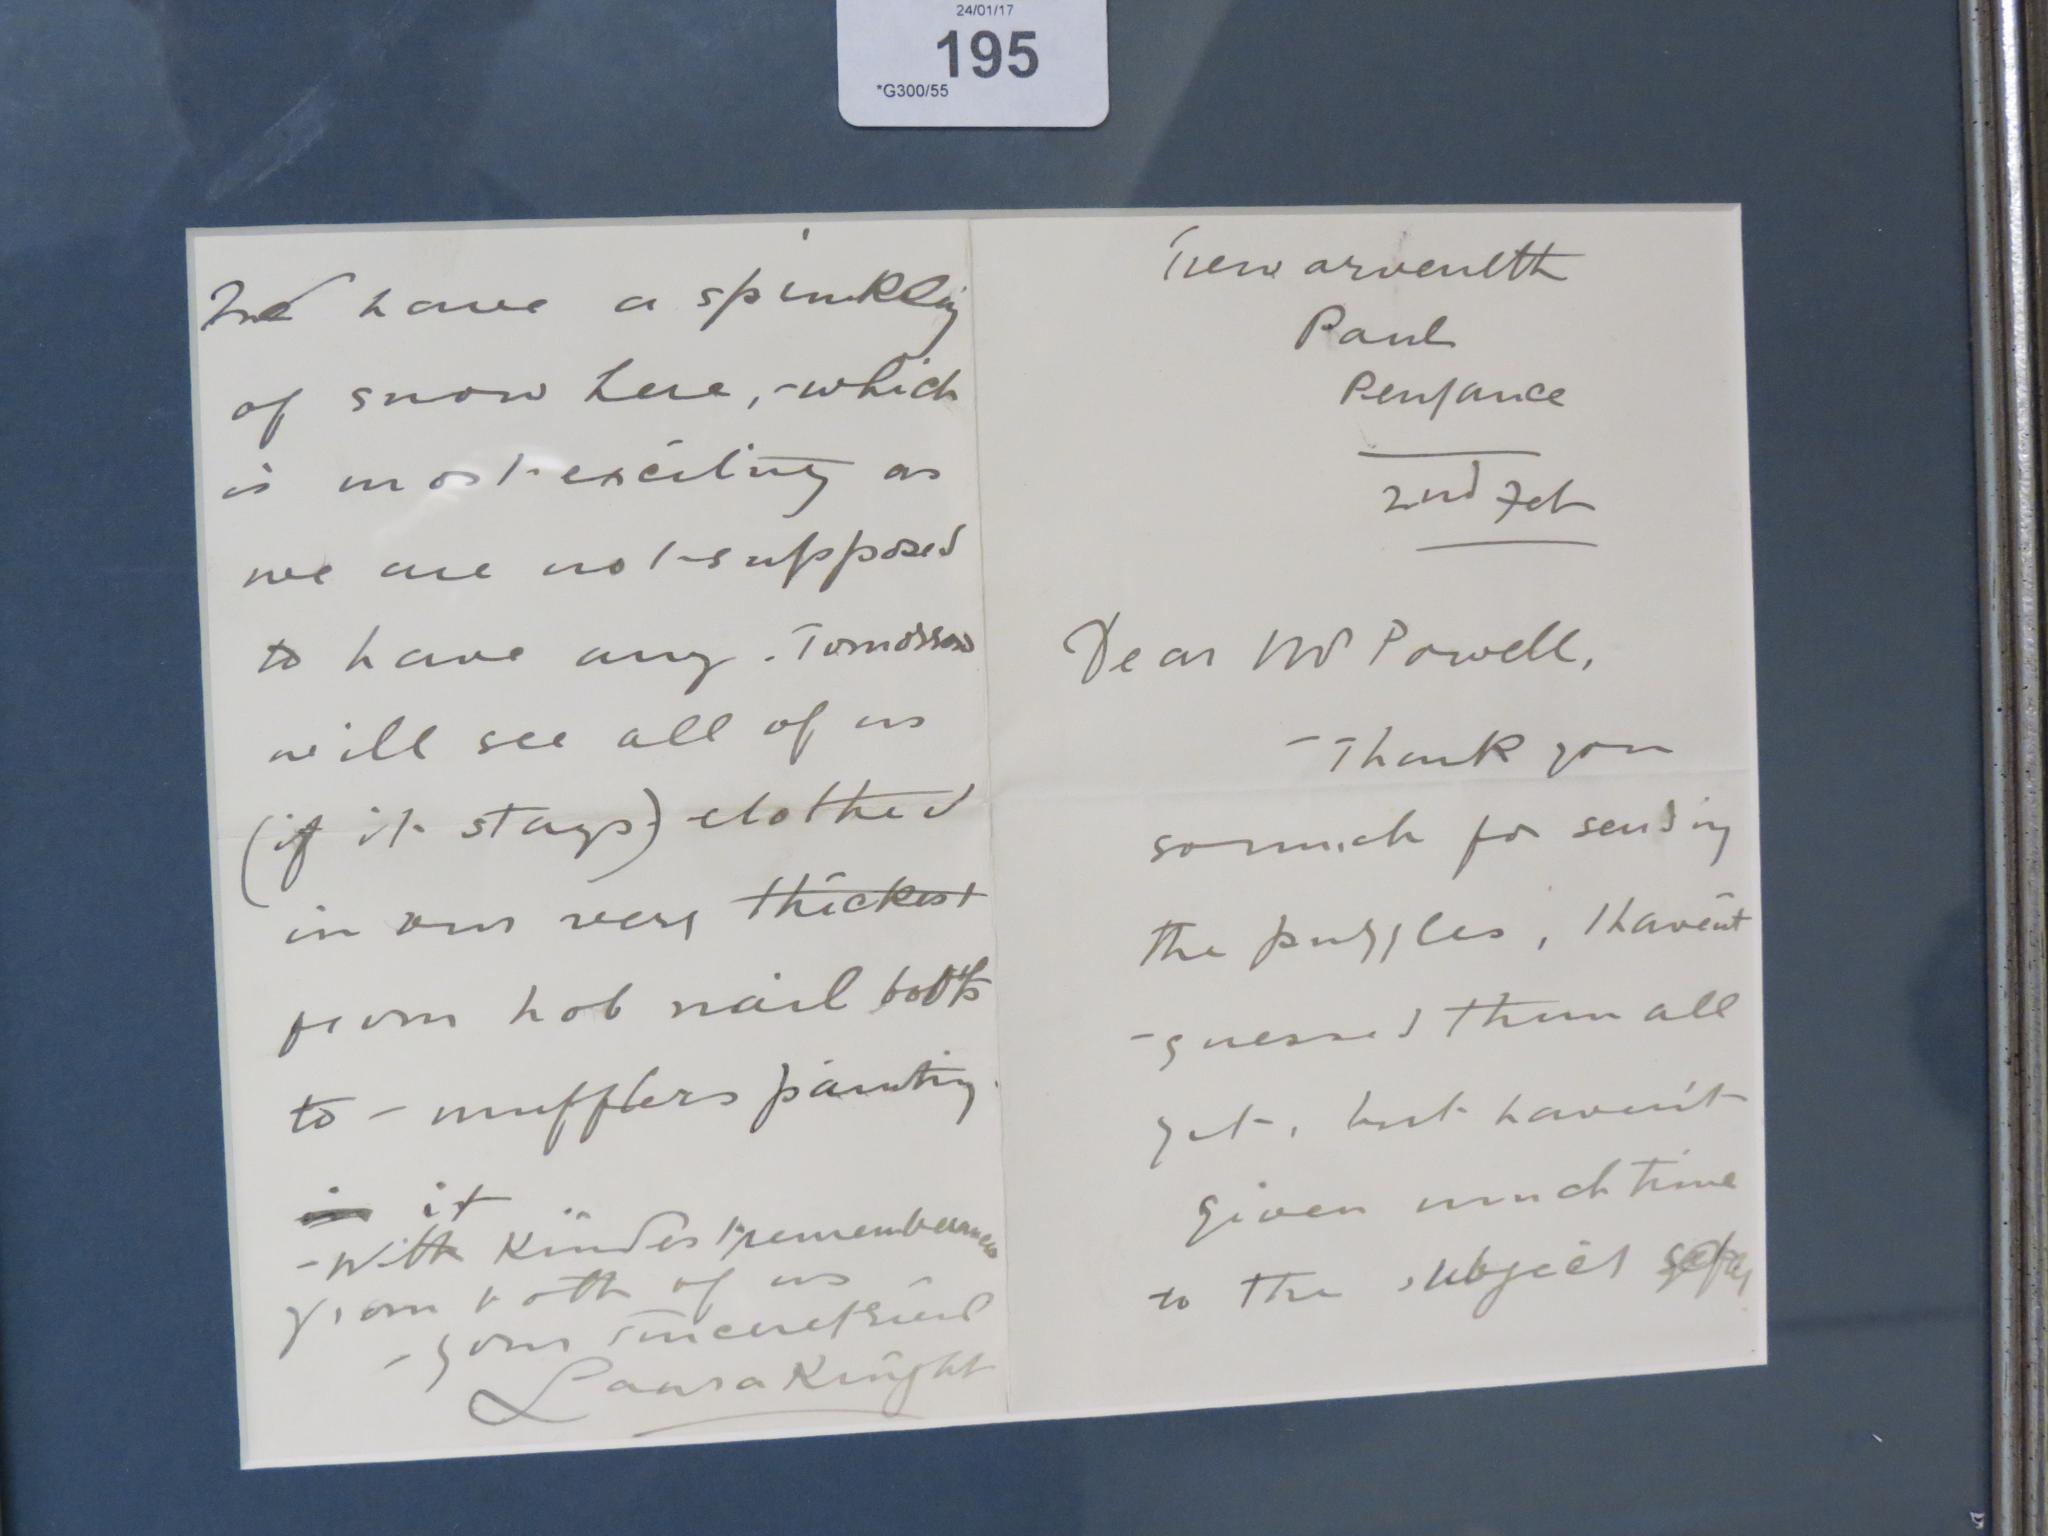 24/01/17
195
*G300/55
Trewarveneth
Paul
Penzance
2nd Feb
Dear Mr Powell,
Thank you
so much for sending
the puzzles, I haven't
guessed them all
yet, but haven't
given much time
to the subject
We have a spinkling
of snow here, - which
is most exciting as
we are not supposed
to have any. Tomorrow
will see all of us
(if it stays) clothed
in our very thickest
from hob nail boots
to - mufflers painting
in it
- With kindest remembrances
from both of us
- yours sincerely
Laura Knight